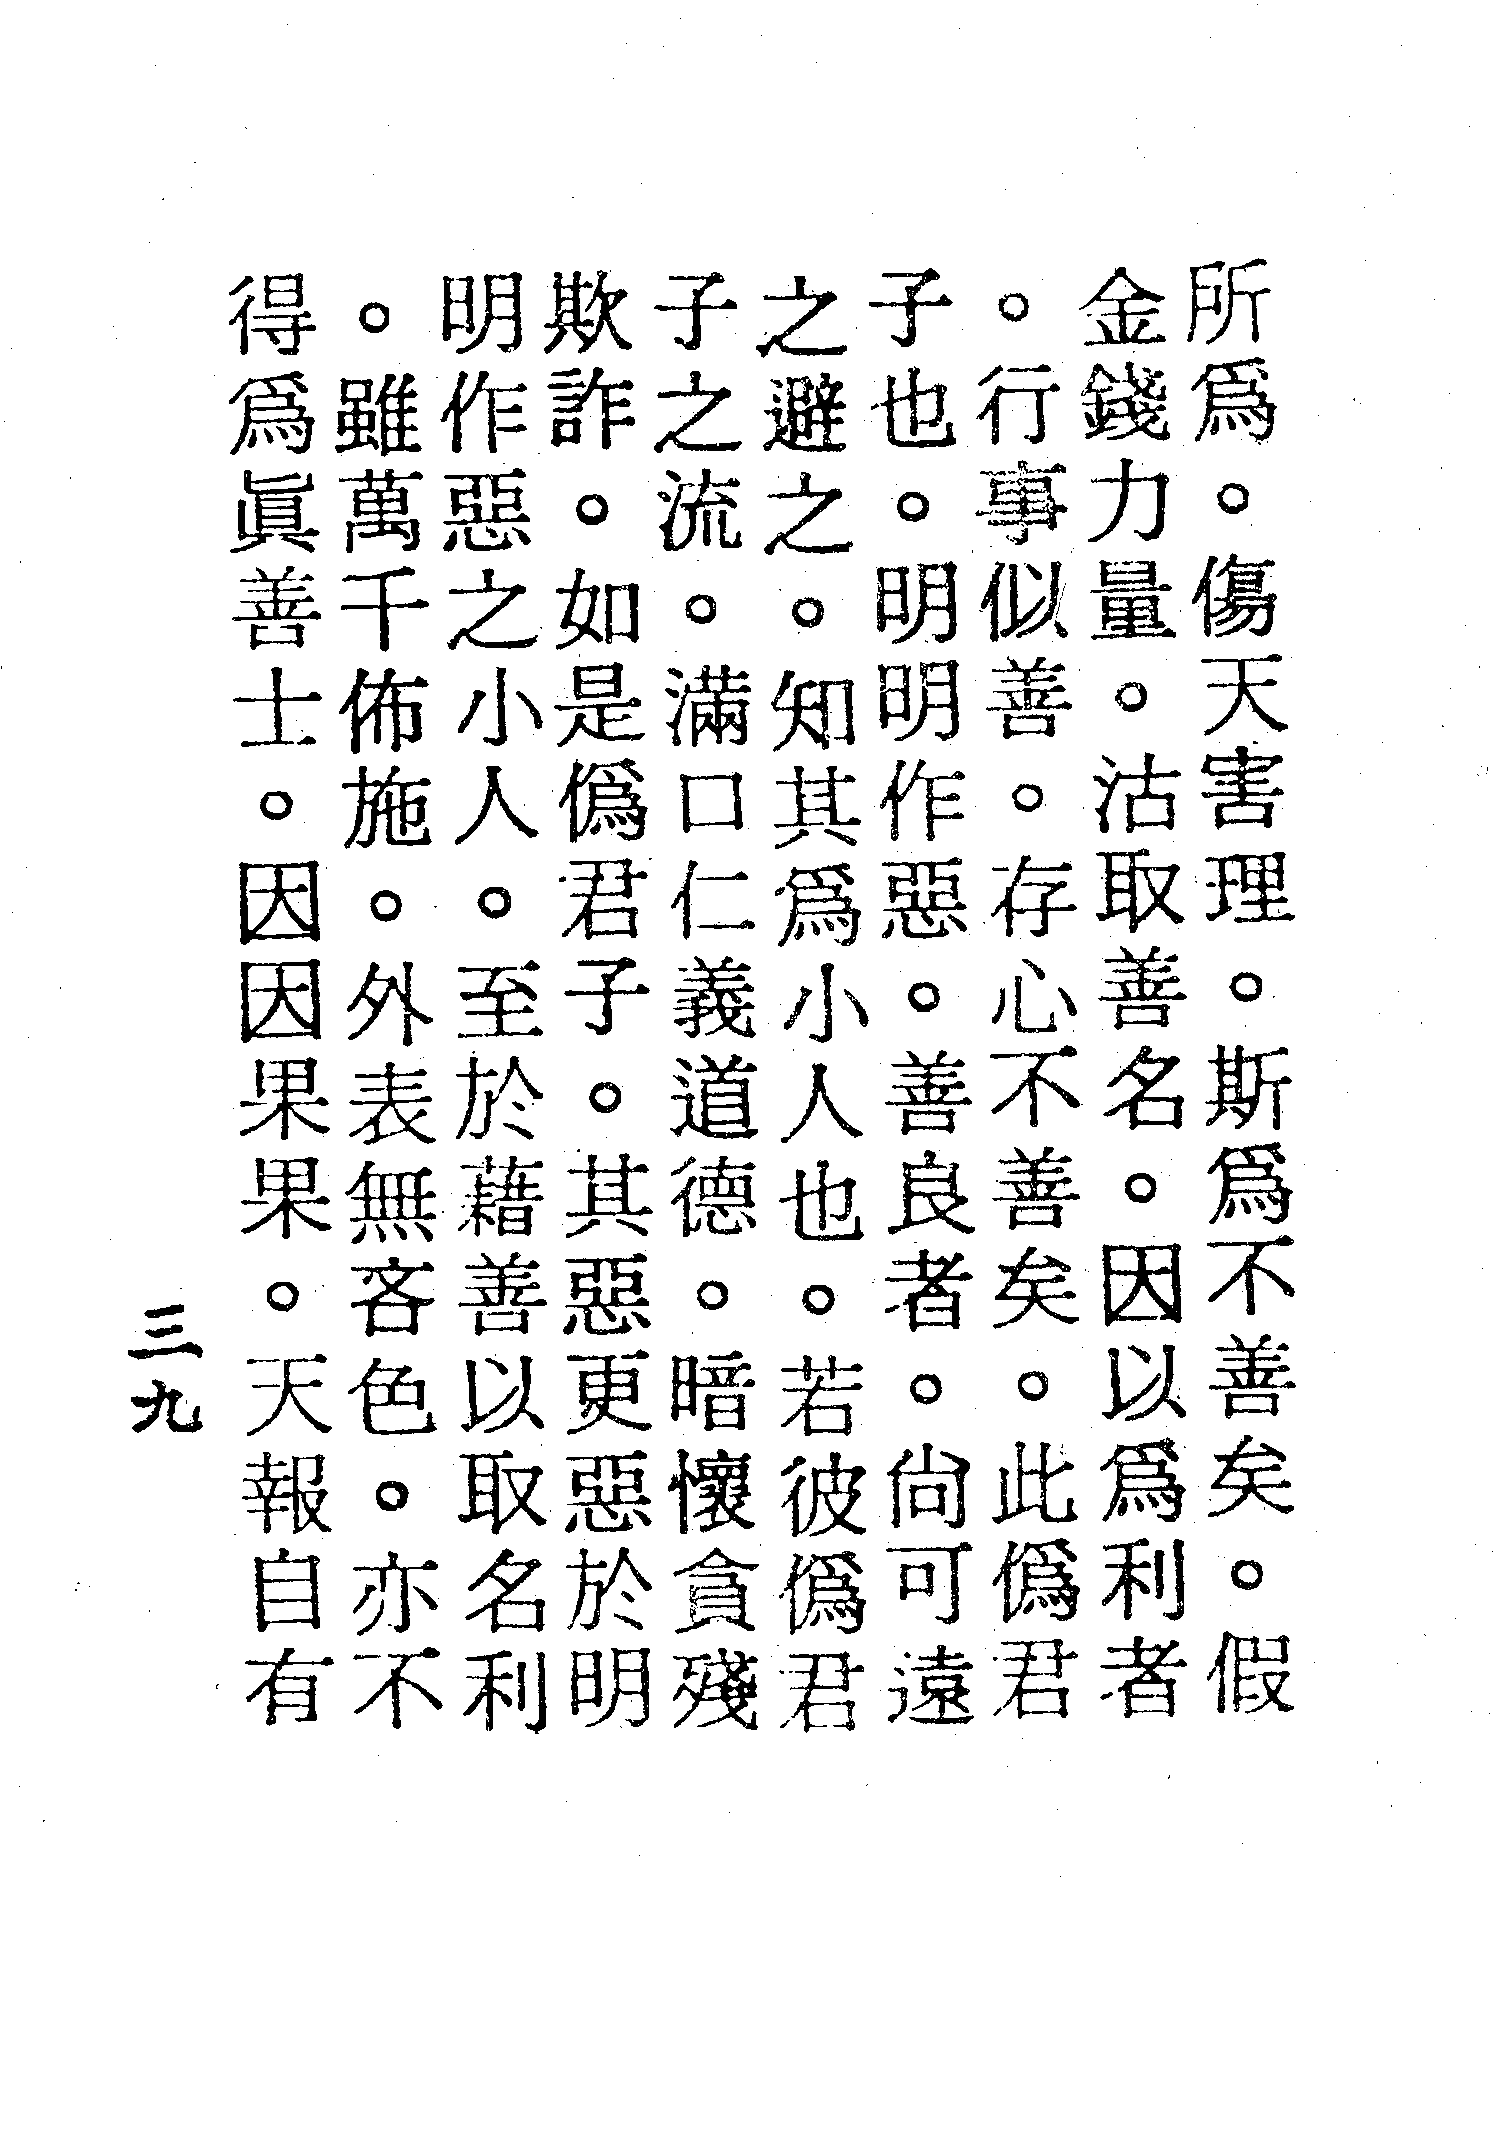 所爲。傷天害理。斯爲不善矣。假
金錢力量。沽取善名。因以爲利者
。行事似善。存心不善矣。此僞君
子也。明明作惡。善良者。尙可遠
之避之。知其爲小人也。若彼僞君
子之流。滿口仁義道德。暗懷貪殘
欺詐。如是僞君子。其惡更惡於明
明作惡之小人。至於藉善以取名利
。雖萬千佈施。外表無吝色。亦不
得爲眞善士。因因果果。天報自有
三九